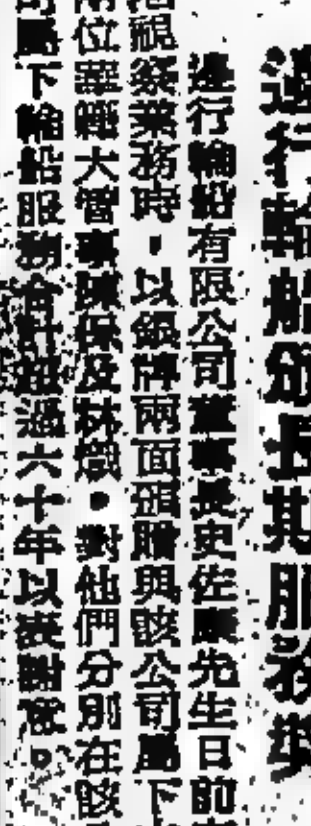 邊行輪船頒長期服務獎
邊行輪船有限公司董事長史佐康先生日前
視察業務時，以銀牌兩面頒贈與該公司屬下
位華籍大管事陳保及林熾。對他們分別在該
屬下輪船服務合計超過六十年以表謝意。